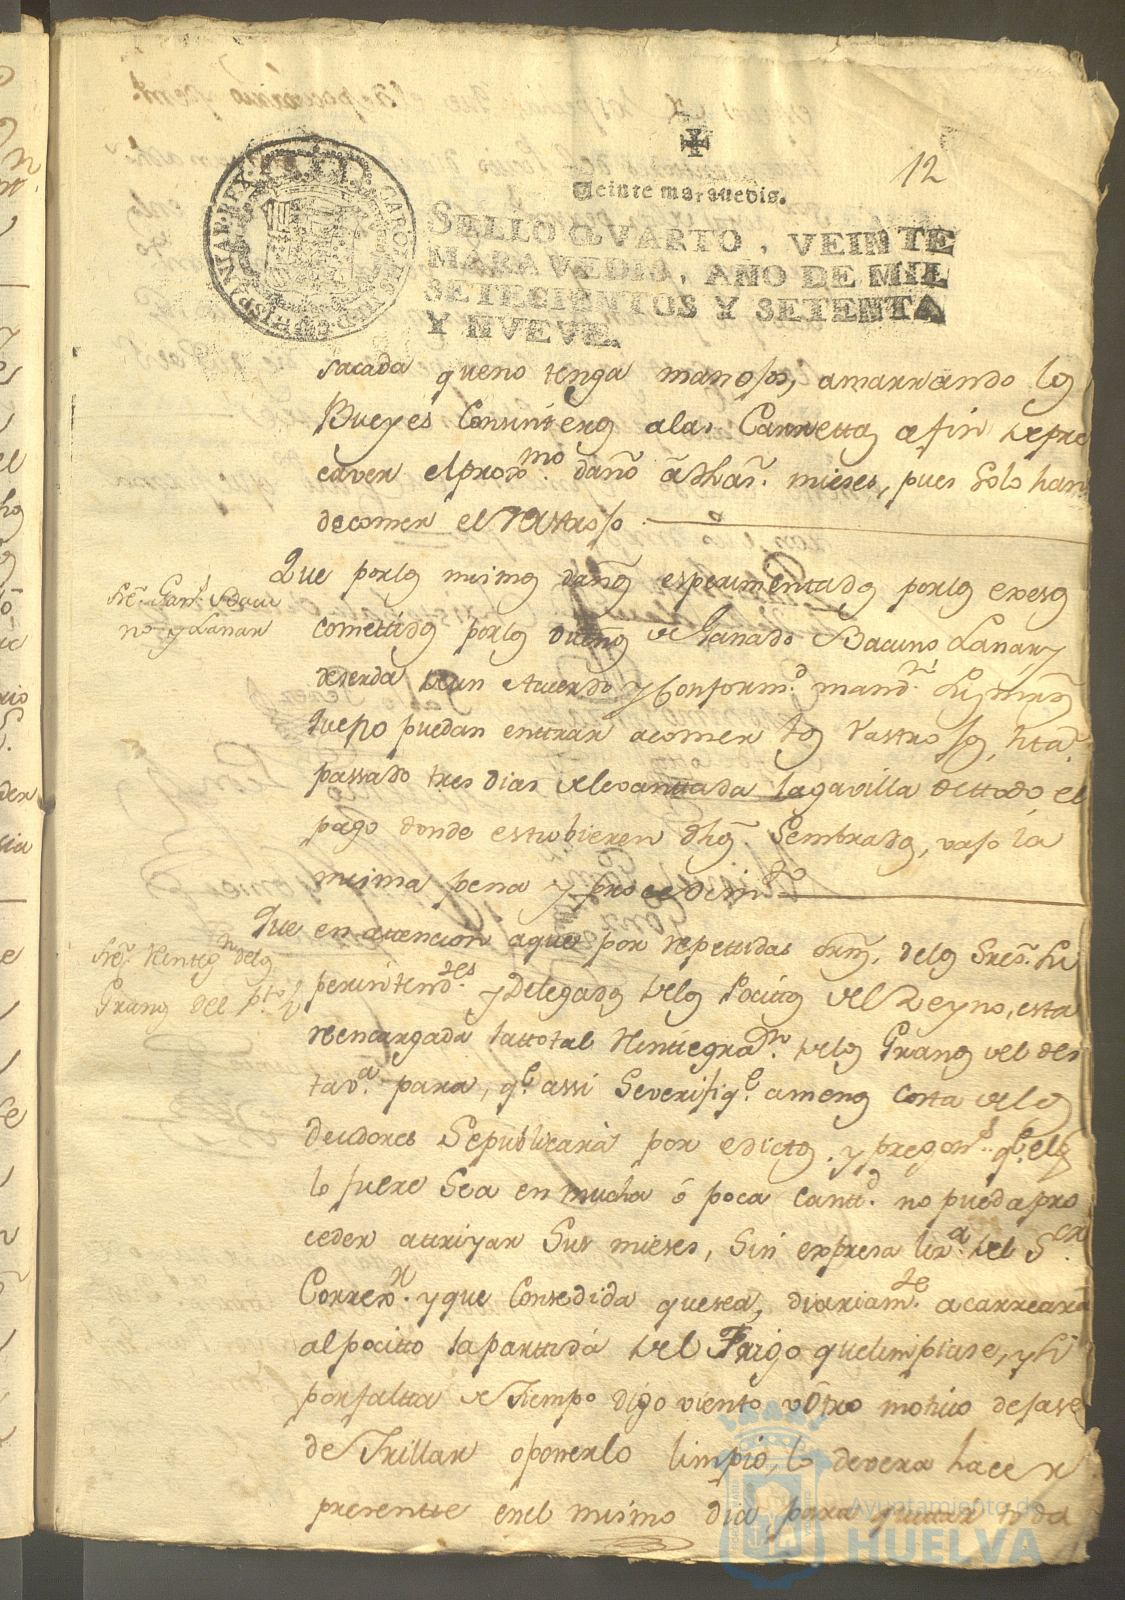 12
Veinte maravedis.
SELLO QVARTO, VEINTE
MARAVEDIS, AÑO DE MIL
SETECIENTOS Y SETENTA
Y NUEVE.
CAROLUS III D.G. HISPANIAR. REX
sacada queno tenga manojos, amarrando los
Bueyes Consinteros alas Carretas afin depre
caver elproxmo. daño adhas. mieses, pues solo han
decomer el Rastrojo
Que porlos mismos daños esperimentados porlos exesos
cometidos porlos dueños de Ganado Bacuno Lanar y
deserda de un Acuerdo y Conformd. mandn. sus mrds
Queno puedan entrar acomer los rastrojos, hta.
passado tres dias delevantada lagavilla dettodo el
pago donde estubieren dhos. Sembrados, vajo la
misma pena y procedimto
Sre. Gands. Bacu
no y Lanar
Que en attencion aque por repettidas orns. delos Sres. Su
perintendtes. y Delegados delos Pocitos del Reyno, esta
reencargada lattotal Reintegran. delos Granos del des
ta va. para, qe. assi Severifiqe. amenos costa delos
deudores Sepublicara por edictos, y pregons. qe. elqe
lo fuere Sea en mucha ó poca cantd. no pueda pro
ceder atrivar Sus mieses, Sin expresa liza. del Sor.
Corregr. y que Consedida quesea, diariamte. acarreara
alpocito lapartida del Trigo quelimpiase, y Si
porfalta de Tiempo digo viento, v otro motivo dejase
de Trillar oponerlo limpio, lo devera hacer
presente enel mismo dia, para quitar toda
Sre. Reintegn delos
Granos del Pto.
Ayuntamiento de
HUELVA